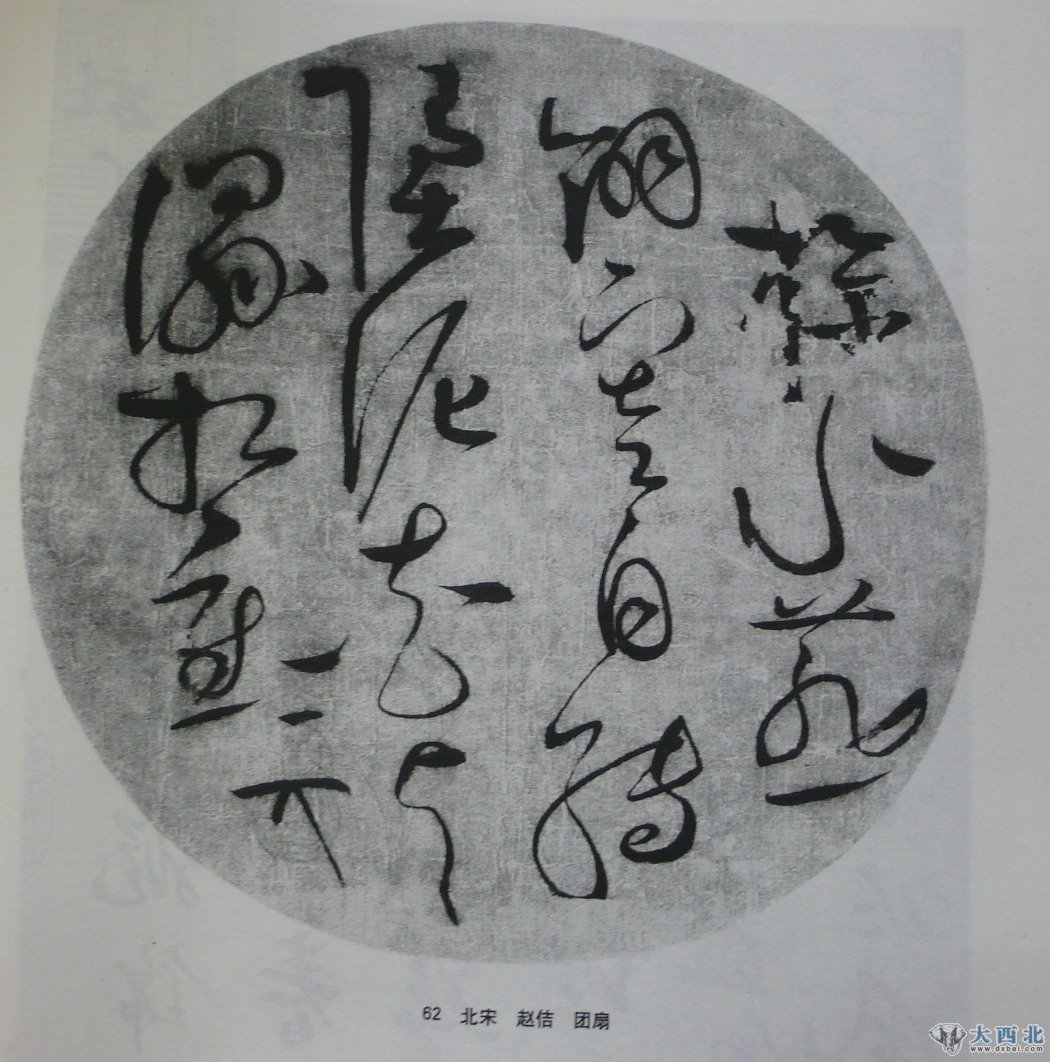 掠水燕
翎寒自轉
墮泥花片
濕相重
62 北宋 赵佶 团扇
大西北
www.dxbei.com